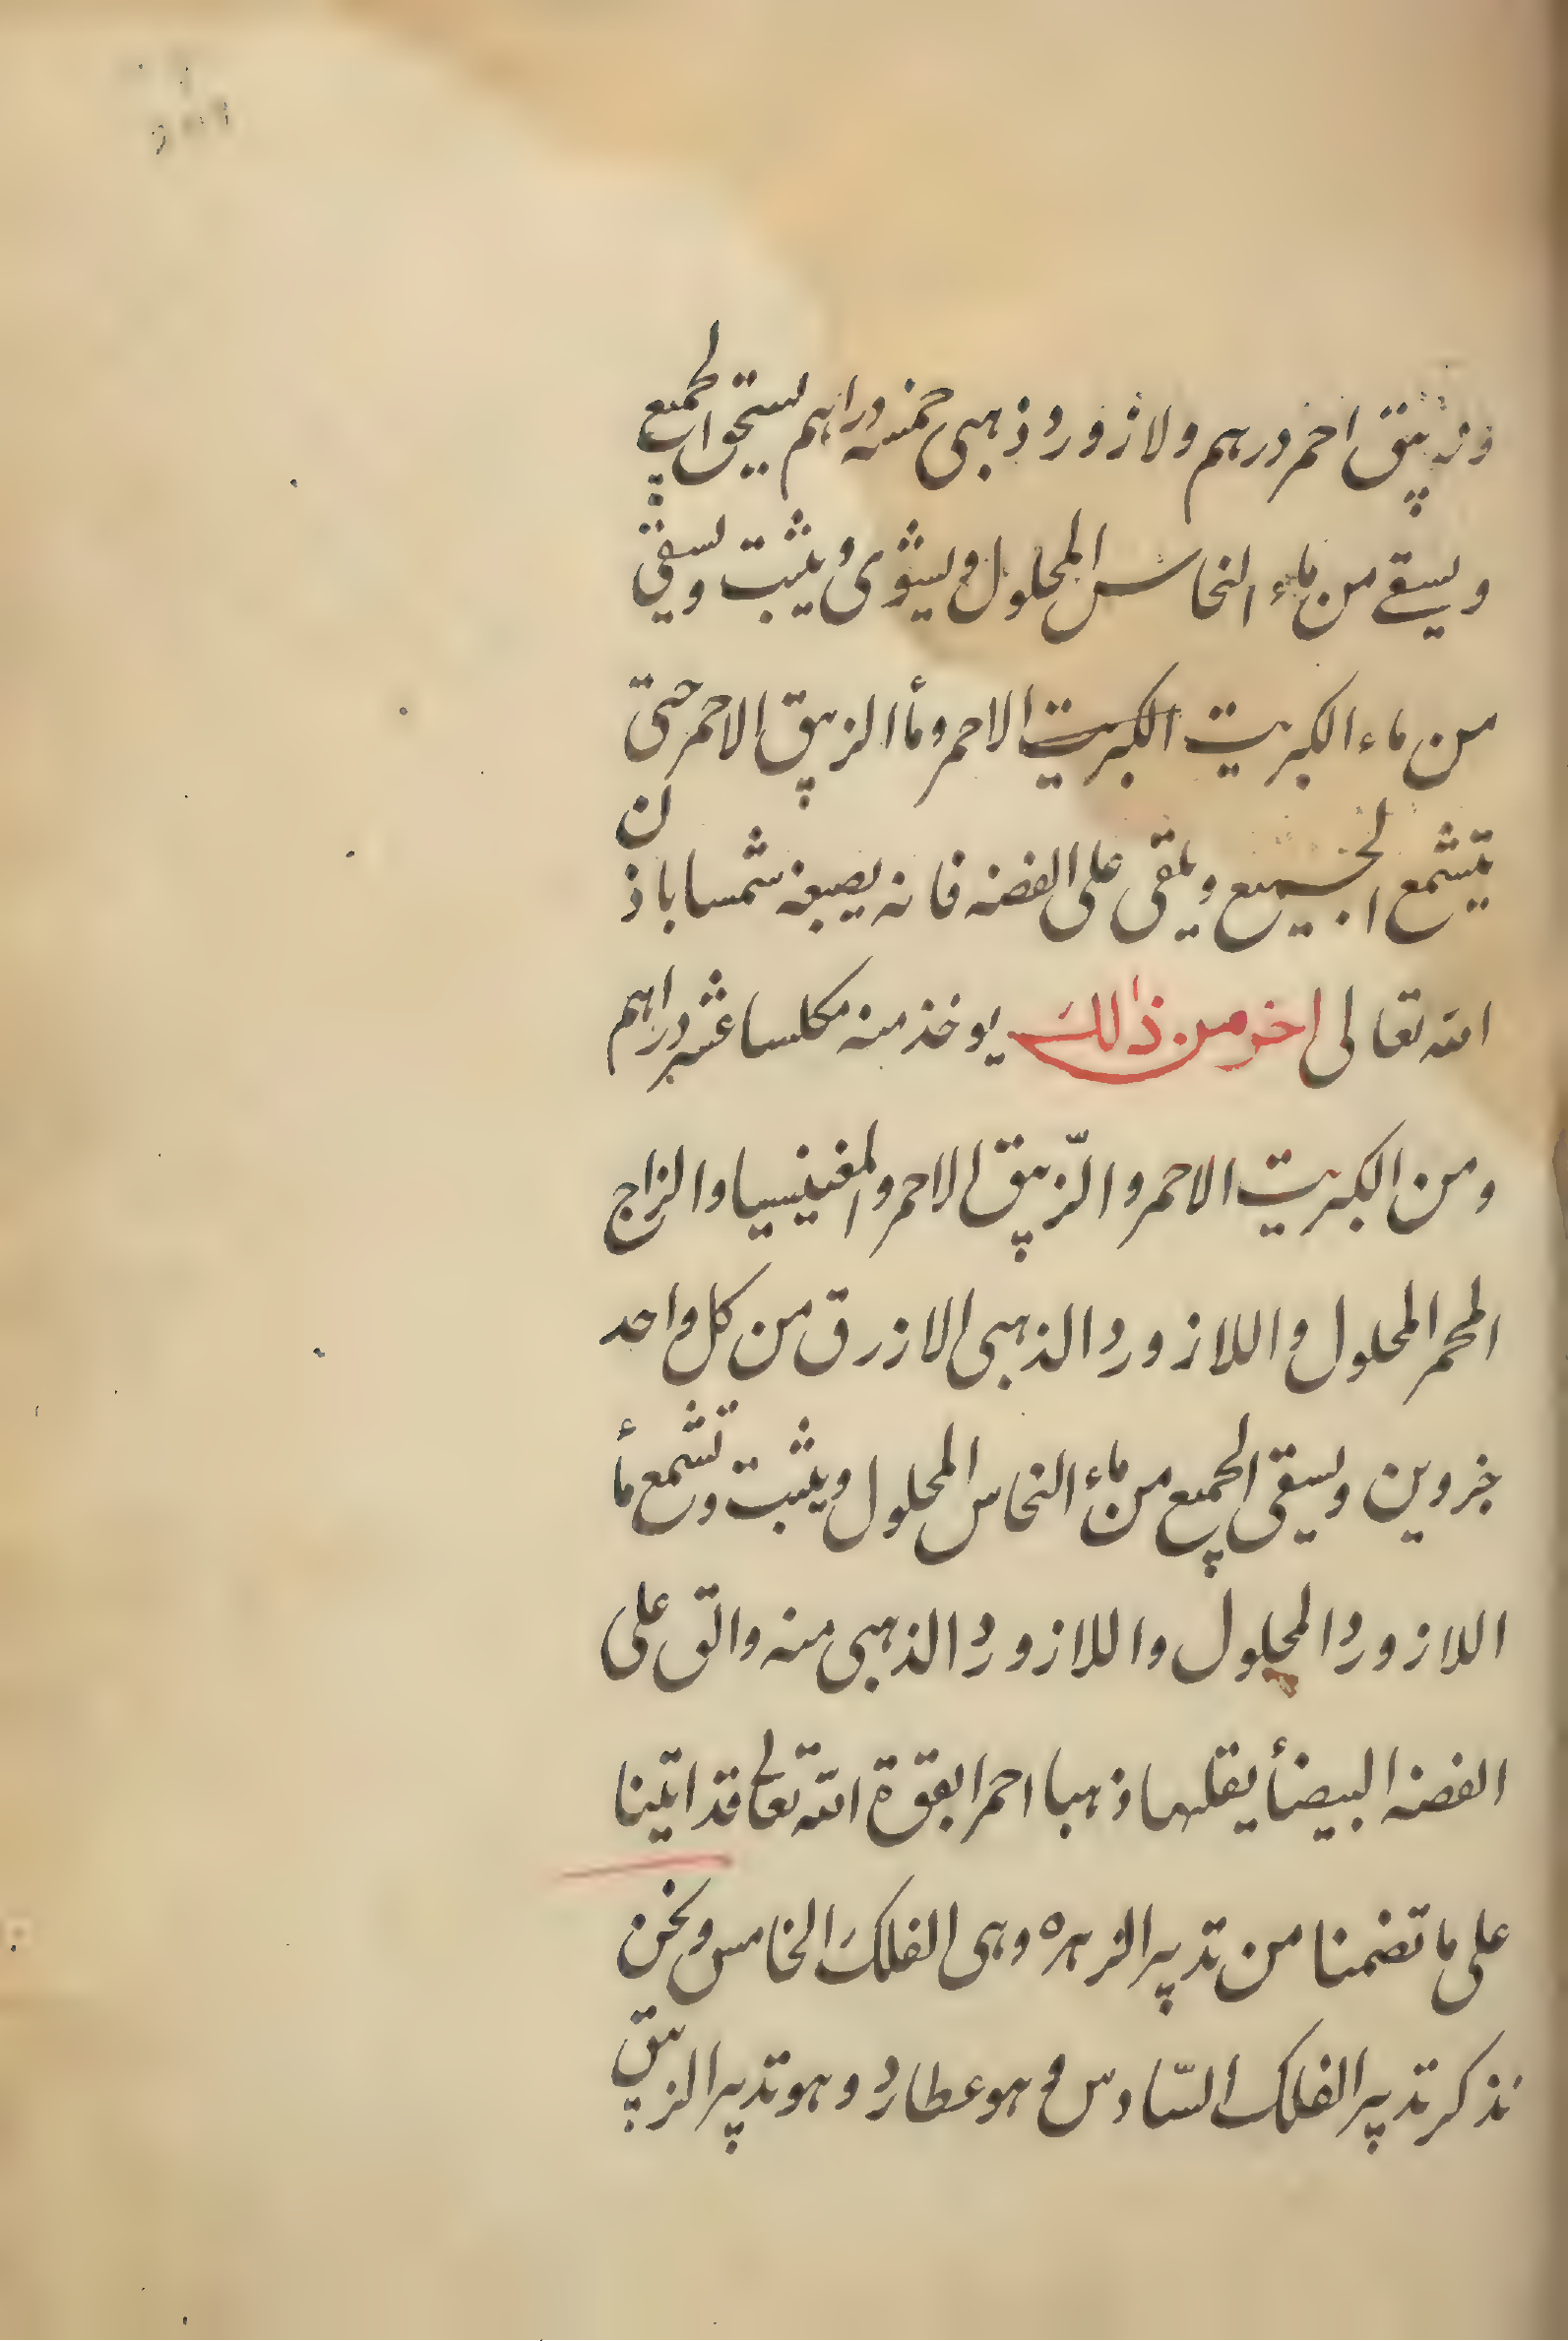 وزيبق احمر درهم ولازورد ذهبى خمسه دراهم يستحق الجميع
ويسقے من ماء النحاس المحلول ويشوى ويثبت ويسقى
من ماء الكبريت الكبريت الاحمر ومأ الزيبق الاحمر حتى
يتشمع الجميع ويلقى على الفضه فانه يصبغه شمسا باذن
الله تعالى اخر من ذٰلك يوخذ منه مكلسا عشر دراهم
ومن الكبريت الاحمر والزّيبق الاحمر والمغنيسيا والزاج
المحمر المحلول واللازورد الذهبى الازرق من كل واحد
جزوين ويسقى الجميع من ماء النحاس المحلول ويثبت وتشمع مأ
اللازورد المحلول واللازورد الذهبى منه والق على
الفضه البيضأ يقلبها ذهبا احمرا بقوة الله تعالى قد اتينا
على ما تضمنا من تدبير الزهره وهى الفلك الخامس ونحن
نذكر تدبير الفلك السّادس وهو عطارد وهو تدبير الزيبق